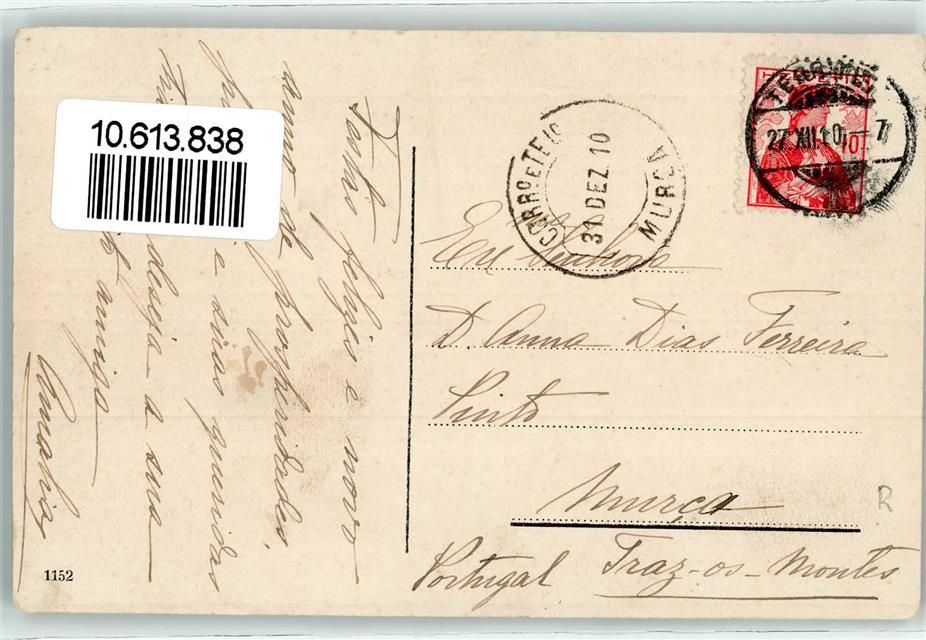 10.613.838
Festas felizes e novo
anno de prosperidades,
e suas queridas
deseja a sua
amiga
Amalia
1152
HELVETIA
10
27.XII.10.-7
CORRO E TELO
31 DEZ. 10
MURÇA
Exª Senhora
D. Anna Dias Ferreira
Pinto
Murça
Portugal Traz-os-Montes
R